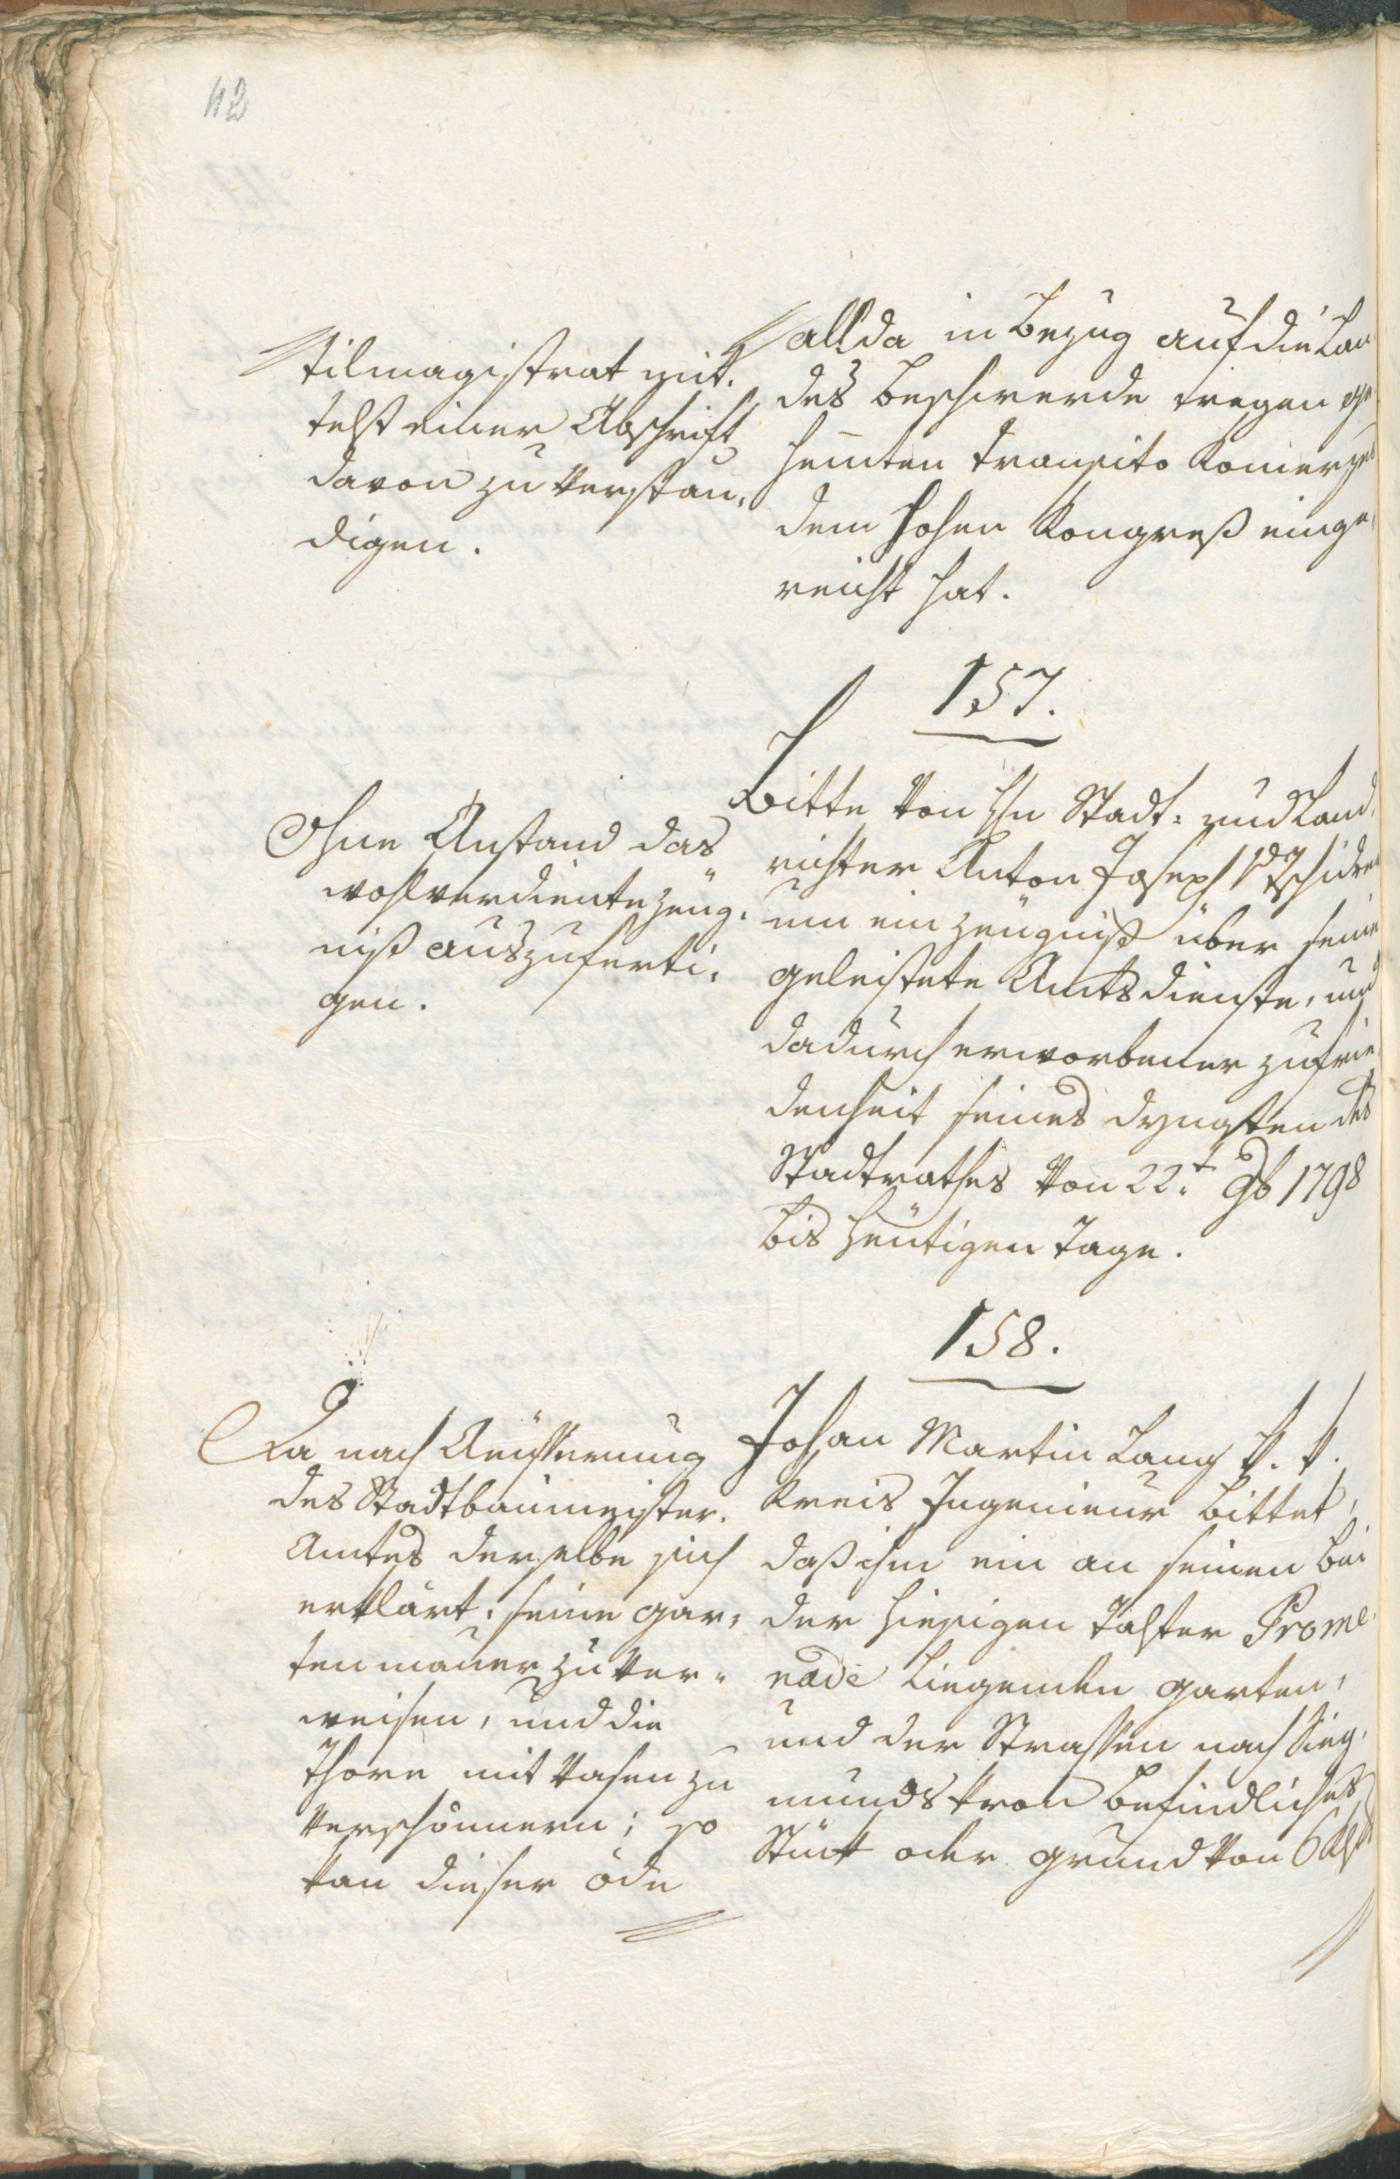 42
tilmagistrat mit-
telst einer Abschrift
davon zu verstän-
digen.
allda in Bezug auf die Lan-
des Beschwerde wegen ge-
hemten Transito Komerzes
dem hohen Kongreß einge-
reicht hat.
157.
Ohne Anstand das
wohlverdiente Zeug-
niß auszuferti-
gen.
Bitte von Hn Stadt- und Land-
richter Anton Joseph v Tschidrer
um ein Zeugniß über seine
geleistete Amtsdienste, und
dadurch erworbener Zufrie-
denheit seines des
Stadtrathes von 22.t 9b 1798
bis heutigen Tage.
158.
Da nach Aeusserung
des Stadtbaumeister-
Amtes derselbe sich
erklärt, seine Gar-
tenmauer zu ver-
weisen, und die
Thore mit Vasen zu
verschönnern; so
kan dieser öde
Johan Martin Lang k. k.
Kreis Ingenieur bittet,
daß ihm ein an seinen bei
der hiesigen Talfer Prome-
nade liegenden Garten,
und der Strassen nach Sieg-
mundskron befindliches
Stück oder Grund von 6